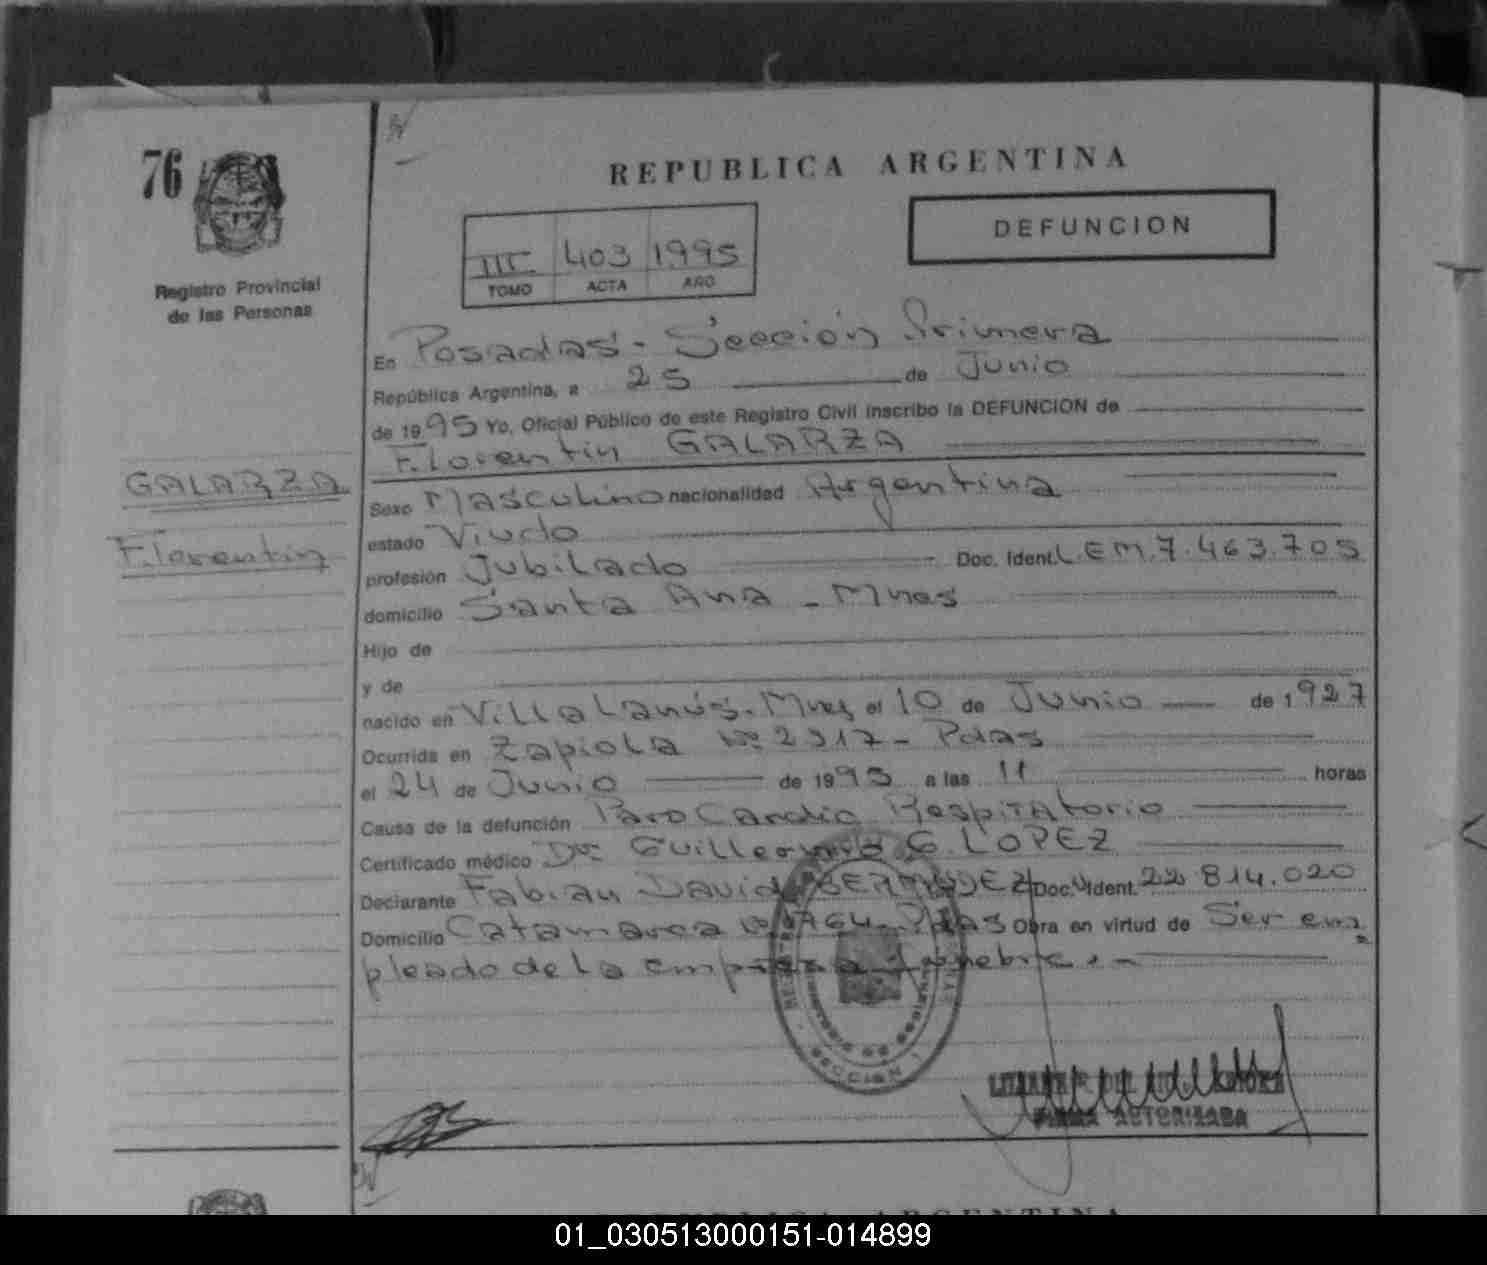 76
Registro Provincial
de las Personas
REPUBLICA ARGENTINA
DEFUNCION
III 403 1995
TOMO ACTA AÑO
En Posadas - Sección Primera
República Argentina, a 25 de Junio
de 1995 Yo, Oficial Público de este Registro Civil inscribo la DEFUNCION de
Florentin GALARZA
GALARZA
Florentin
Sexo Masculino nacionalidad Argentina
estado Viudo
profesión Jubilado Doc. Ident. L.E.M. 7.463.705
domicilio Santa Ana - Mnes
Hijo de
y de
nacido en Villa Lanús. Mnes el 10 de Junio de 1927
Ocurrida en Zapiola Nº 2917 - Pdas
el 24 de Junio de 1995 a las 11 horas
Causa de la defunción Paro Cardio Respiratorio
Certificado médico Dr. Guillermo G. LOPEZ
Declarante Fabian David BERMUDEZ Doc. Ident. 22.814.020
Domicilio Catamarca Nº 1764 - Pdas Obra en virtud de Ser em
pleado de la empresa funebre. -
SECCION 1
FIRMA AUTORIZADA
REPUBLICA ARGENTINA
01_030513000151-014899